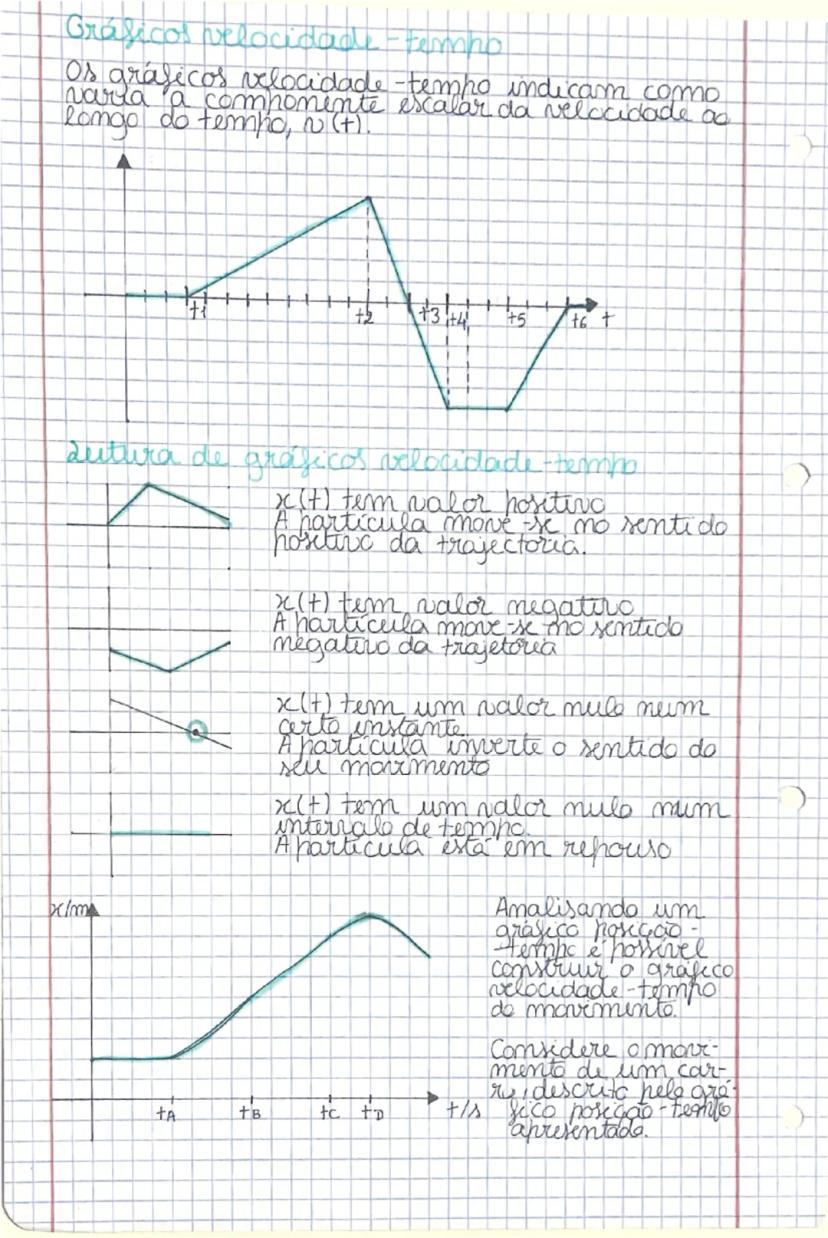 Gráficos velocidade-tempo
Os gráficos velocidade-tempo indicam como
varia a componente escalar da velocidade ao
longo do tempo, v(t).
t1
t2
t3
t4
t5
t6
t
Leitura de gráficos velocidade-tempo
x(t) tem valor positivo
A partícula move-se no sentido
positivo da trajectoria.
x(t) tem valor negativo
A partícula move-se no sentido
negativo da trajetória
x(t) tem um valor nulo num
certo instante.
A partícula inverte o sentido do
seu movimento
x(t) tem um valor nulo num
intervalo de tempo.
A partícula está em repouso
x/m
tA
tB
tC
tD
t/s
Analisando um
gráfico posição-
-tempo é possível
construir o gráfico
velocidade-tempo
do movimento.
Considere o movi-
mento de um car-
ro, descrito pelo grá-
fico posição-tempo
apresentado.